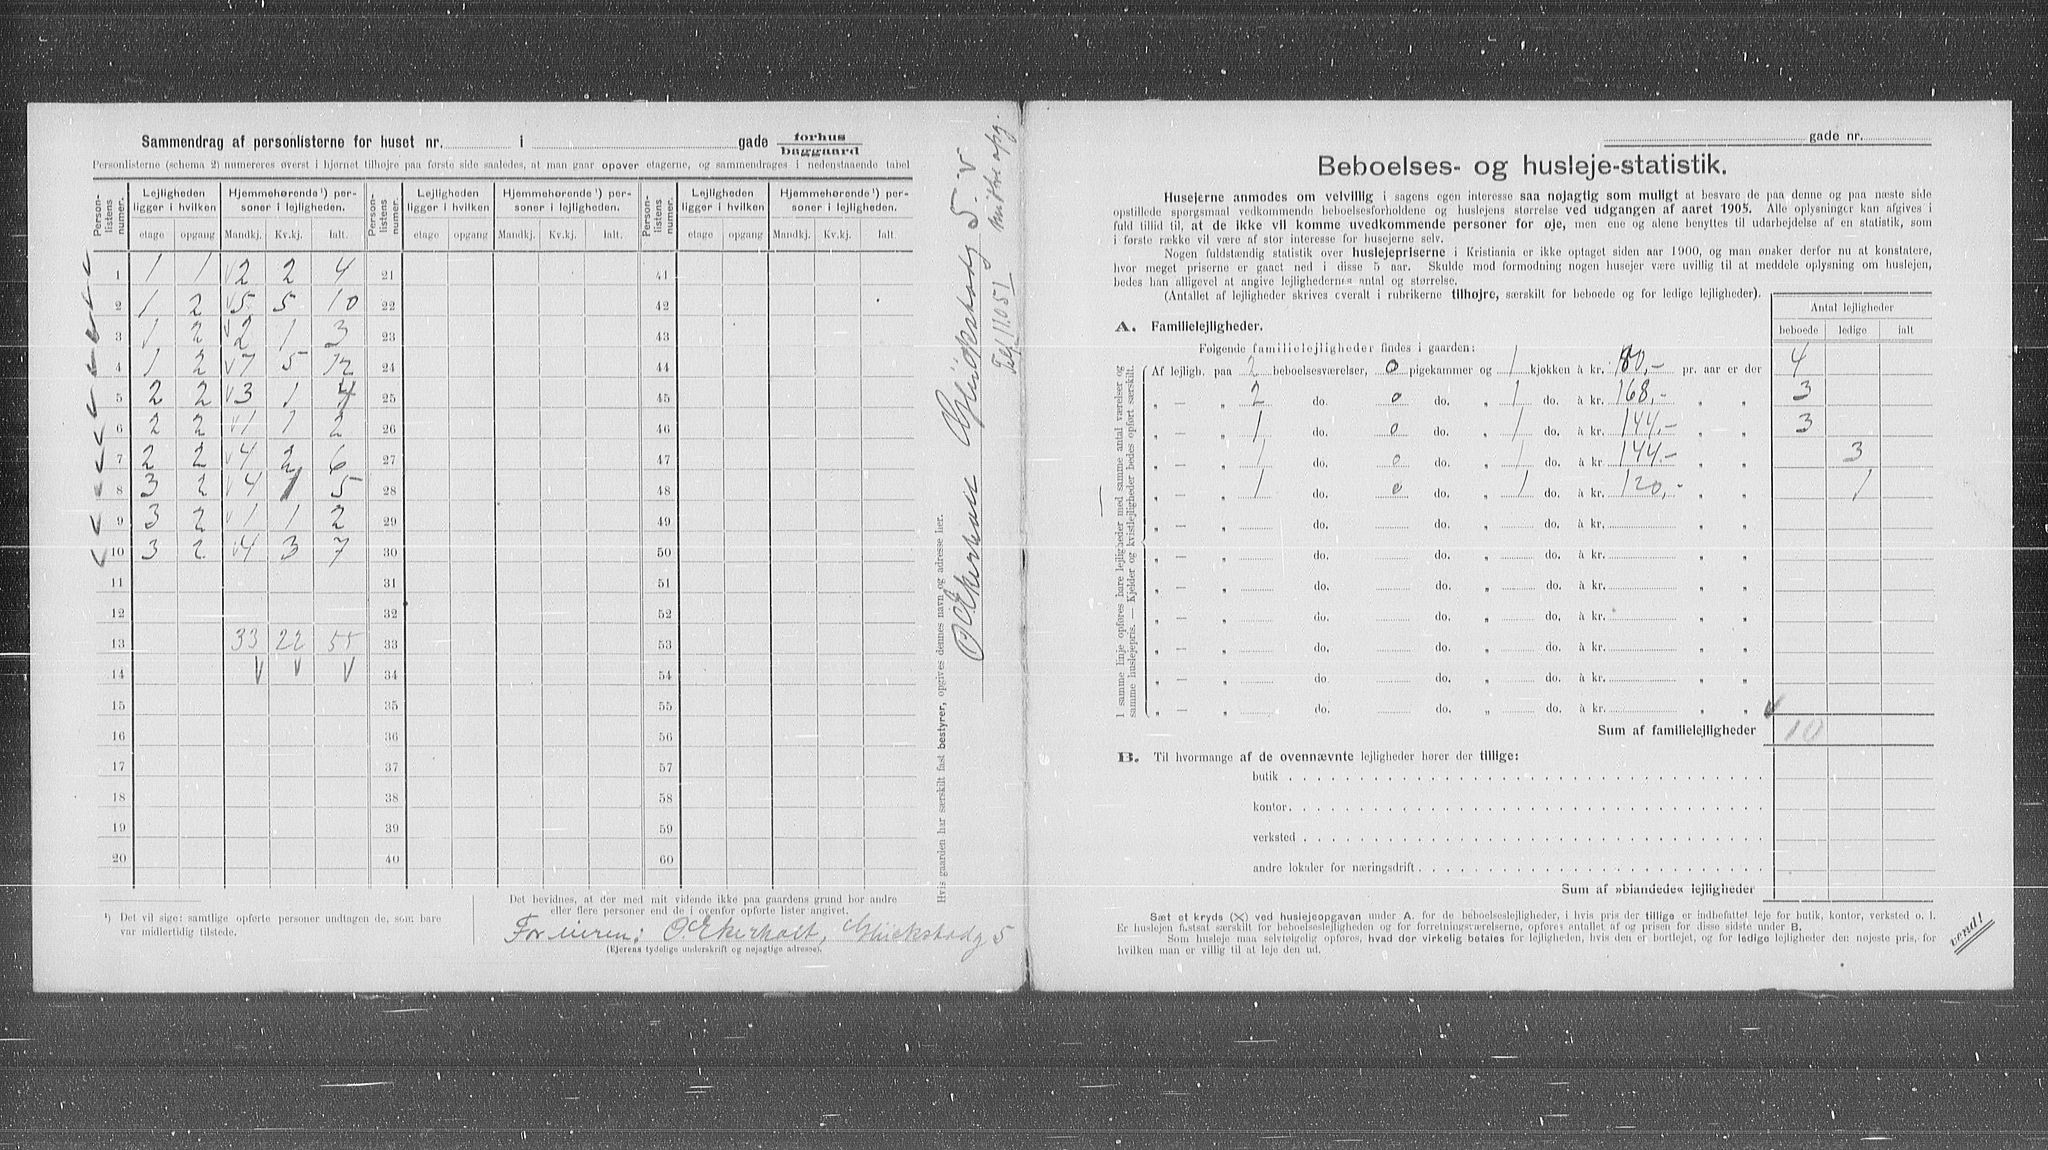 Sammendrag af personlisterne for huset nr. i gade forhus
baggaard
Personlisterne (schema 2) numereres øverst i hjørnet tilhøjre paa første side saaledes, at man gaar opover etagerne, og sammendrages i nedenstaaende tabel
Person-listens numer. Lejligheden ligger i hvilken Hjemmehørende¹) personer i lejligheden. Person-listens numer. Lejligheden ligger i hvilken Hjemmehørende¹) personer i lejligheden. Person-listens numer. Lejligheden ligger i hvilken Hjemmehørende¹) personer i lejligheden.
etage opgang Mandkj. Kv.kj. Ialt. etage opgang Mandkj. Kv.kj. Ialt. etage opgang Mandkj. Kv.kj. Ialt.
1 1 1 2 2 4 21 41
2 1 2 5 5 10 22 42
3 1 2 2 1 3 23 43
4 1 2 7 5 12 24 44
5 2 2 3 1 4 25 45
6 2 2 1 1 2 26 46
7 2 2 4 2 6 27 47
8 3 2 4 1 5 28 48
9 3 2 1 1 2 29 49
10 3 2 4 3 7 30 50
11 31 51
12 32 52
13 33 22 55 33 53
14 34 54
15 35 55
16 36 56
17 37 57
18 38 58
19 39 59
20 40 60
¹) Det vil sige: samtlige opførte personer undtagen de, som bare
var midlertidig tilstede.
Det bevidnes, at der med mit vidende ikke paa gaardens grund bor andre
eller flere personer end de i ovenfor opførte lister angivet.
For eieren: O. Ekerholt, Glückstadg 5
(Ejerens tydelige underskrift og nøjagtige adresse).
Hvis gaarden har særskilt fast bestyrer, opgives dennes navn og adresse her.
O Ekerholt Glückstadg 5. v
Telf 11051 midtre opg.
gade nr.
Beboelses- og husleje-statistik.
Husejerne anmodes om velvillig i sagens egen interesse saa nøjagtig som muligt at besvare de paa denne og paa næste side
opstillede spørgsmaal vedkommende beboelsesforholdene og huslejens størrelse ved udgangen af aaret 1905. Alle oplysninger kan afgives i
fuld tillid til, at de ikke vil komme uvedkommende personer for øje, men ene og alene benyttes til udarbejdelse af en statistik, som
i første række vil være af stor interesse for husejerne selv.
Nogen fuldstændig statistik over huslejepriserne i Kristiania er ikke optaget siden aar 1900, og man ønsker derfor nu at konstatere,
hvor meget priserne er gaaet ned i disse 5 aar. Skulde mod formodning nogen husejer være uvillig til at meddele oplysning om huslejen,
bedes han alligevel at angive lejlighedernes antal og størrelse.
(Antallet af lejligheder skrives overalt i rubrikerne tilhøjre, særskilt for beboede og for ledige lejligheder).
Antal lejligheder
beboede ledige ialt
A. Familielejligheder.
Følgende familielejligheder findes i gaarden:
I samme linje opføres bare lejligheder med samme antal værelser og
samme huslejepris. — Kjelder og kvistlejligheder bedes opført særskilt.
Af lejligh. paa 2 beboelsesværelser, 0 pigekammer og 1 kjøkken à kr. 180,- pr. aar er der 4
„ — „ 2 do. 0 do. „ 1 do. à kr. 168,- „ „ 3
„ — „ 1 do. 0 do. „ 1 do. à kr. 144,- „ „ 3
„ — „ 1 do. 0 do. „ 1 do. à kr. 144,- „ „ 3
„ — „ 1 do. 0 do. „ 1 do. à kr. 120,- „ „ 1
„ — „ do. do. „ do. à kr. „ „
„ — „ do. do. „ do. à kr. „ „
„ — „ do. do. „ do. à kr. „ „
„ — „ do. do. „ do. à kr. „ „
„ — „ do. do. „ do. à kr. „ „
„ — „ do. do. „ do. à kr. „ „
„ — „ do. do. „ do. à kr. „ „
Sum af familielejligheder 10
B. Til hvormange af de ovennævnte lejligheder hører der tillige:
butik
kontor
verksted
andre lokaler for næringsdrift
Sum af »blandede« lejligheder
Sæt et kryds (X) ved huslejeopgaven under A. for de beboelseslejligheder, i hvis pris der tillige er indbefattet leje for butik, kontor, verksted o. l.
Er huslejen fastsat særskilt for beboelseslejligheden og for forretningsværelserne, opføres antallet af og prisen for disse sidste under B.
Som husleje maa selvfølgelig opføres, hvad der virkelig betales for lejligheden, hvis den er bortlejet, og for ledige lejligheder den nøjeste pris, for
hvilken man er villig til at leje den ud.
vend!